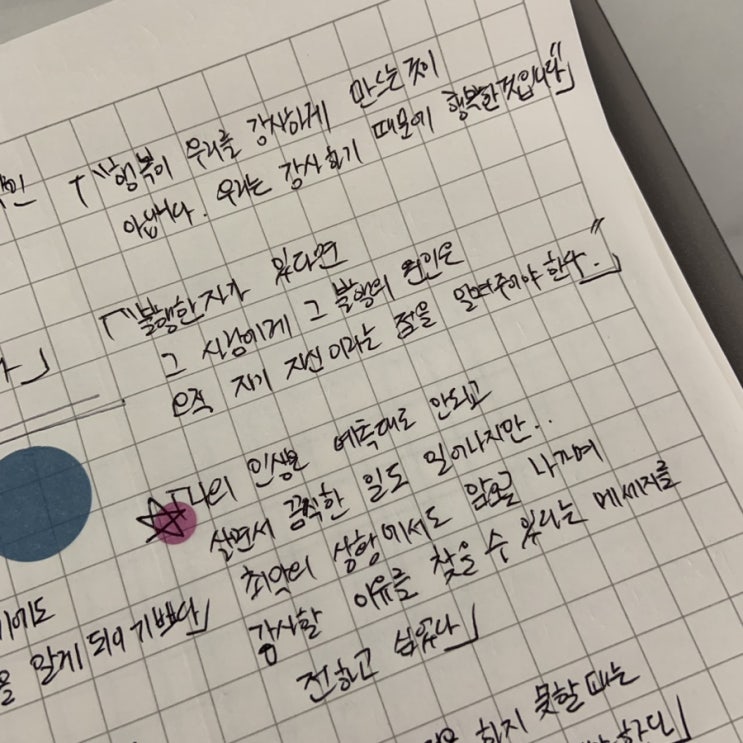 「"행복이 우리를 감사하게 만드는 것이
아닙니다. 우리는 감사하기 때문에 행복한 것입니다"」
「"불행한 자가 있다면
그 사람에게 그 불행의 원인은
오직 자기 자신이라는 점을 알려주어야 한다."」
「나의 인생은 예측대로 안되고
살면서 끔찍한 일도 일어나지만..
최악의 상황에서도 앞으로 나가며
감사할 이유를 찾을 수 있다는 메세지를
전하고 싶었다」
알게 되어 기뻤다」
하지 못할 때는